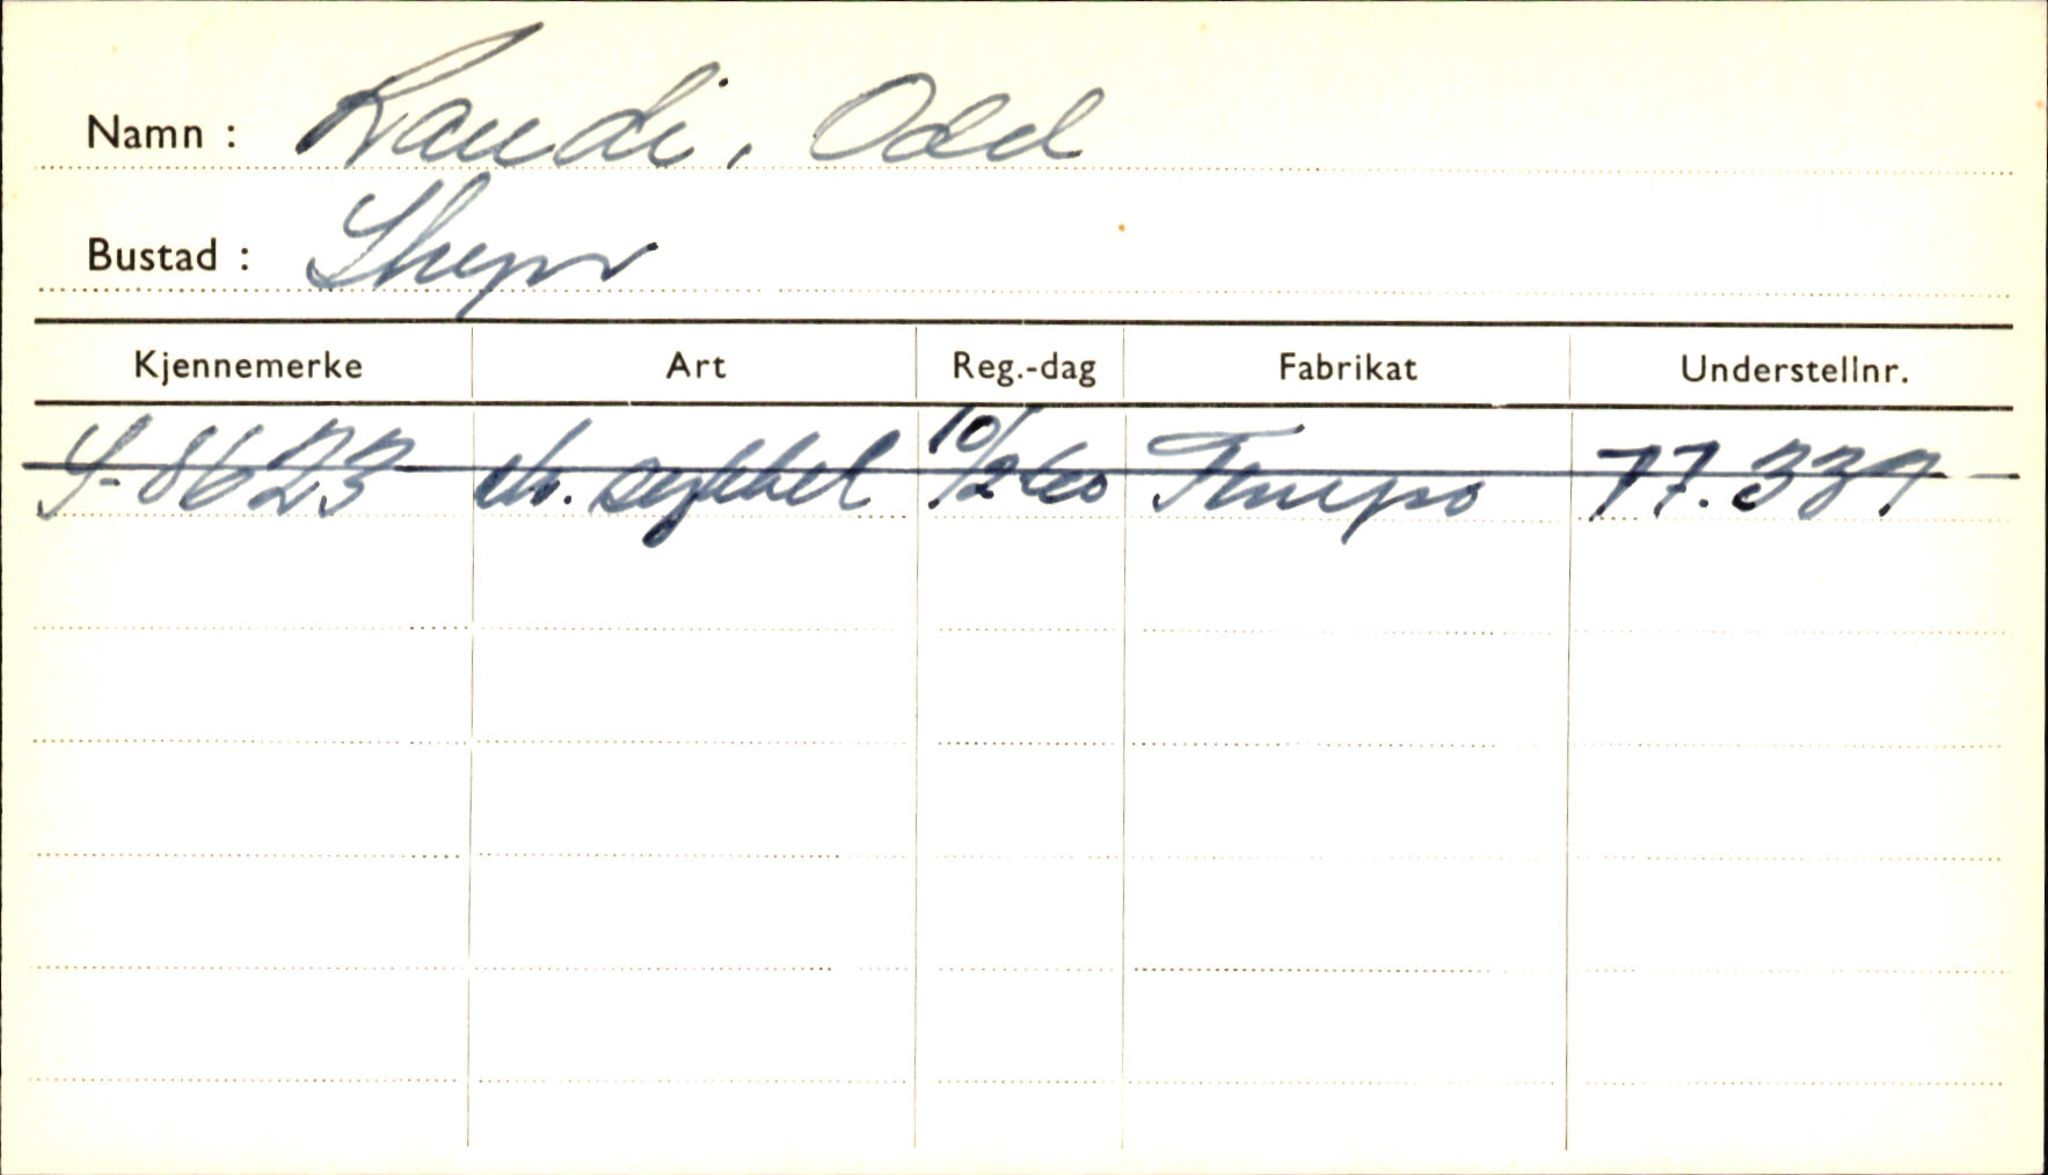 Namn : Raudi, Odd
Bustad : Skeyr
Kjennemerke Art Reg.-dag Fabrikat Understellnr.
S-8623 m. sykkel 10/2-60 Tempo 77.339